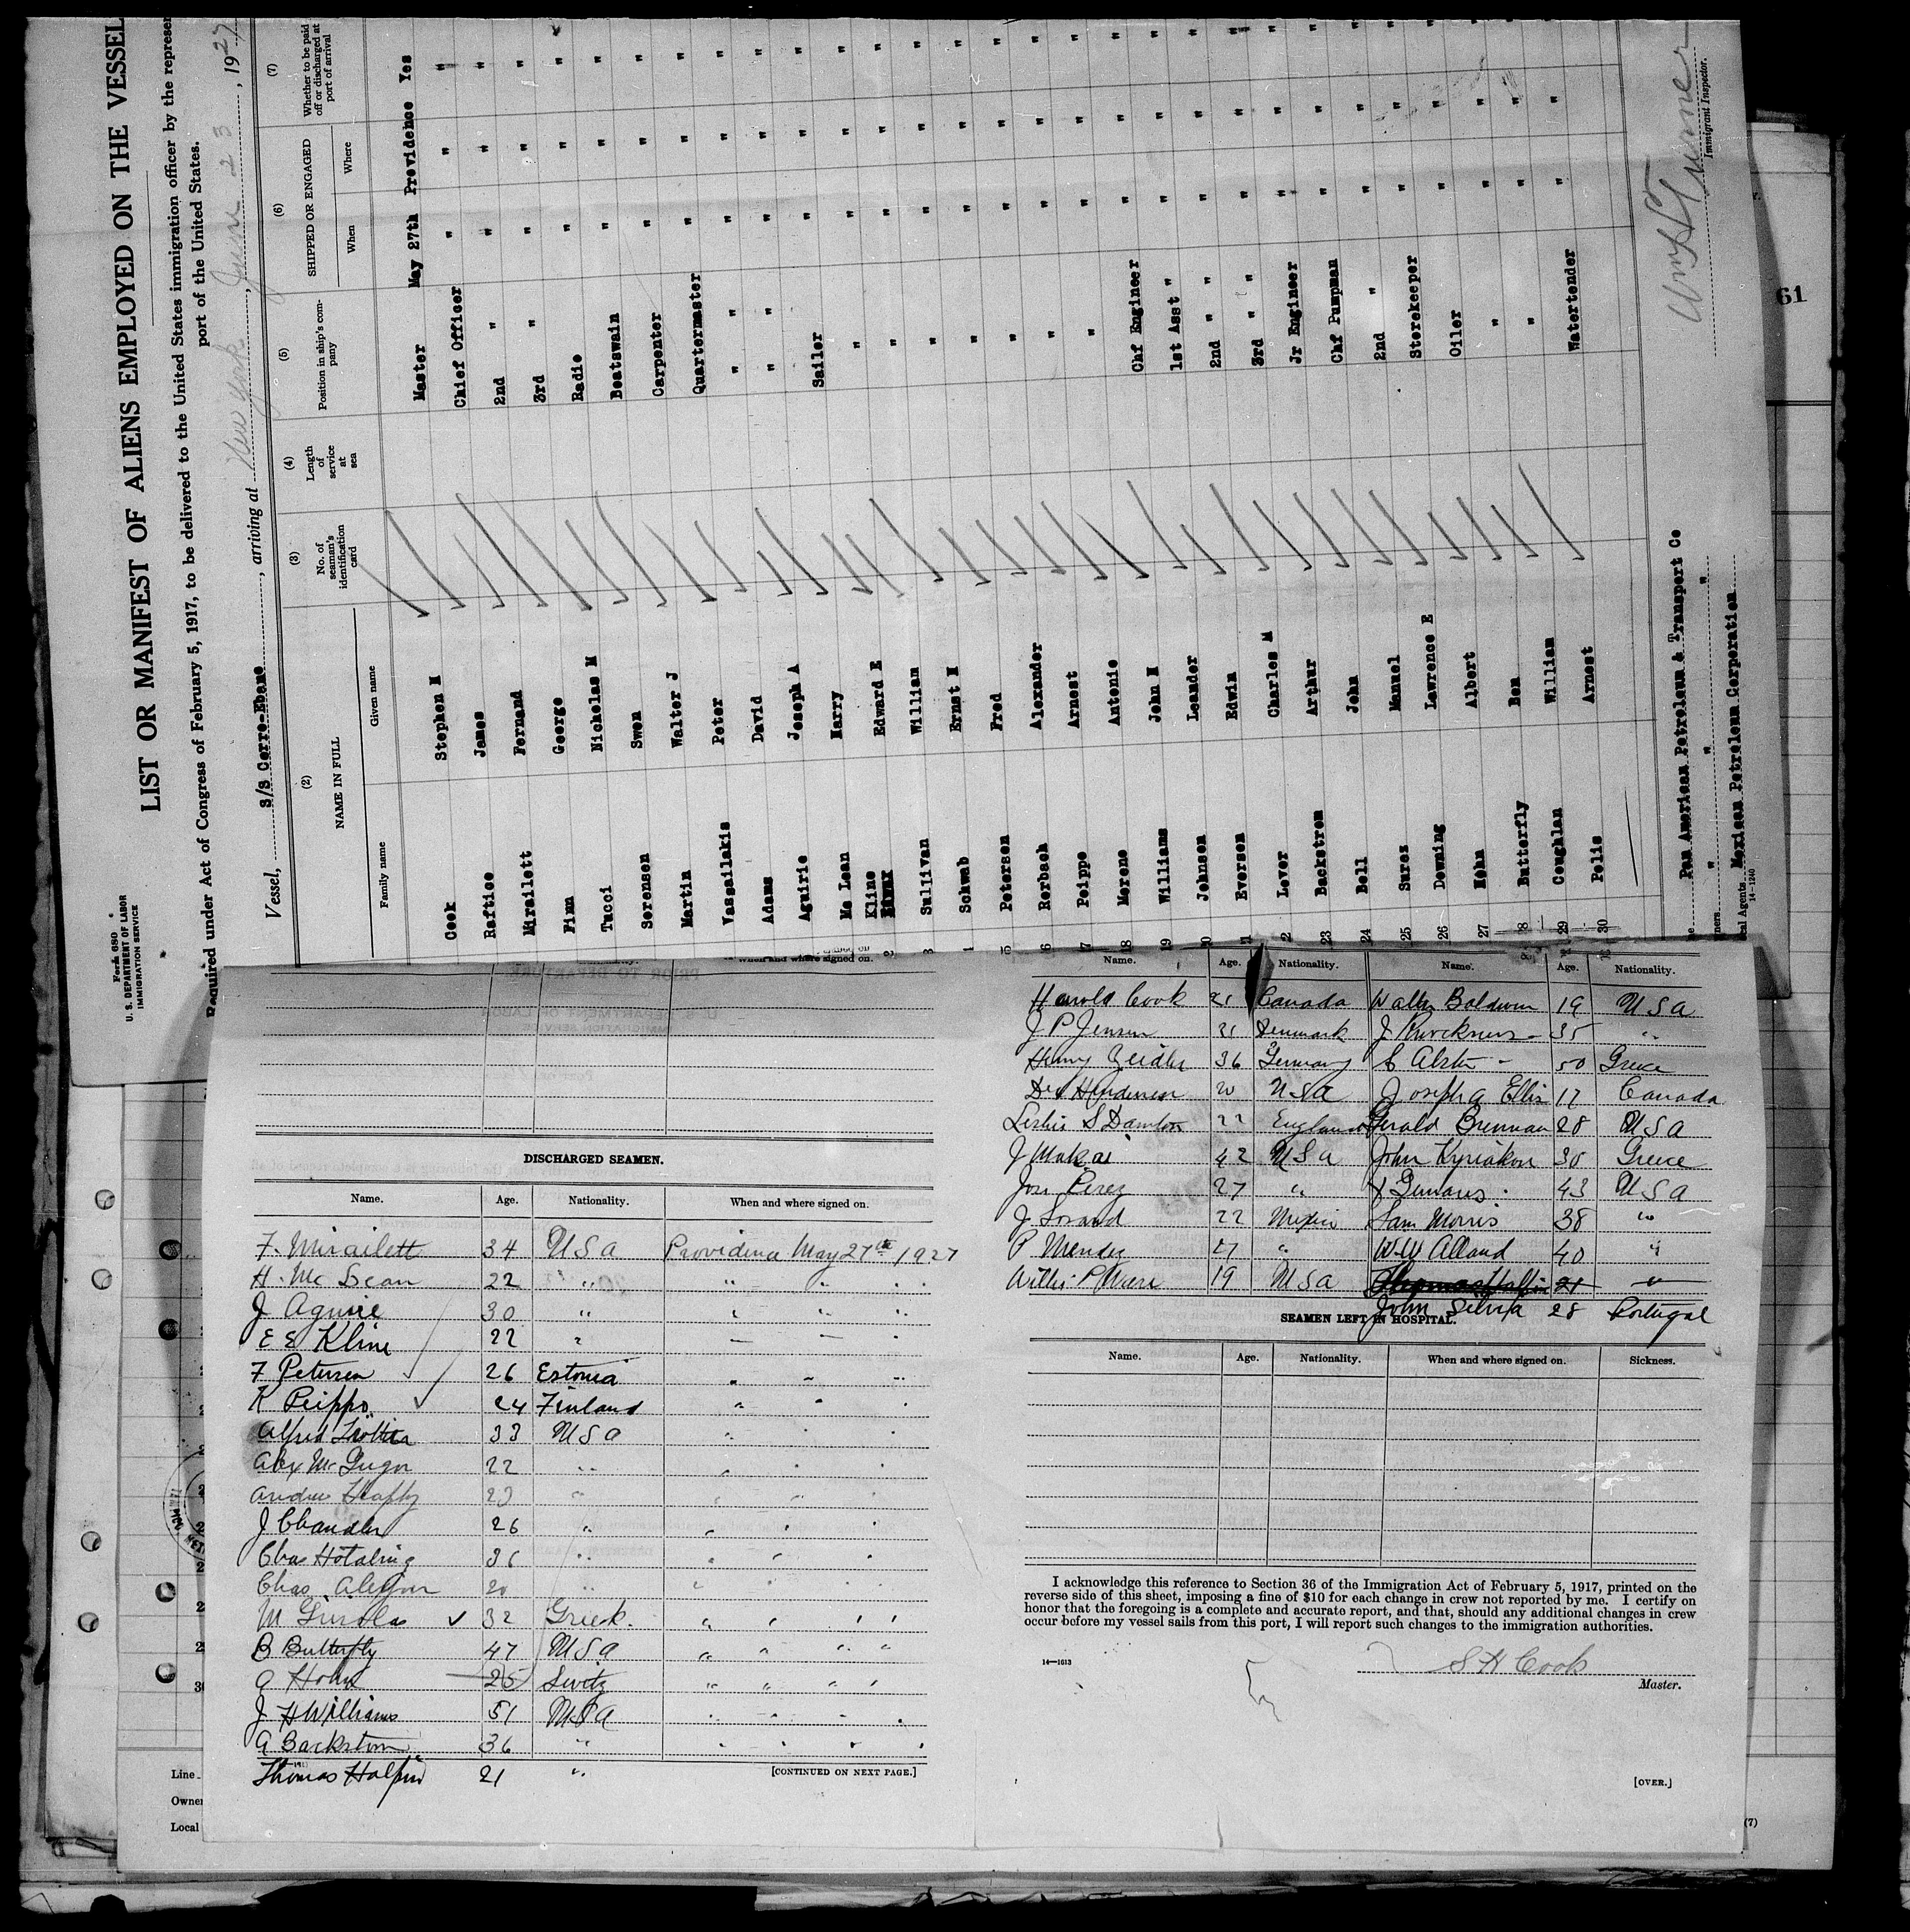 Form 680
U. S. DEPARTMENT OF LABOR
IMMIGRATION SERVICE
LIST OR MANIFEST OF ALIENS EMPLOYED ON THE VESSEL
Required under Act of Congress of February 5, 1917, to be delivered to the United States immigration officer by the represen
port of the United States.
Vessel, S/S Cerro-Ebano, arriving at New York, June 23, 1927
(2) (3) (4) (5) (6) (7)
NAME IN FULL
Family name Given name
No. of seaman's identification card
Length of service at sea
Position in ship's company
SHIPPED OR ENGAGED
When Where
Whether to be paid off or discharged at port of arrival
Cook Stephen H Master May 27th Providence Yes
Raftice James Chief Officer " " "
Mirailett Fernand 2nd " " " "
Finn George 3rd " " " "
Tucci Nicholas M Radio " " "
Sorensen Swen Boatswain " " "
Martin Walter J Carpenter " " "
Vassailakis Peter Quartermaster " " "
Adams David " " " " "
Aguirie Joseph A " " " " "
Mc Lean Harry Sailor " " "
Kline Edward E " " " "
Sullivan William " " " "
Schwab Ernst H " " " "
Petersen Fred " " " "
16 Rorbach Alexander " " " "
17 Peippo Arnest " " " "
18 Moreno Antonio " " " "
19 Williams John H Chf Engineer " " "
20 Johnson Leander 1st Asst " " " "
21 Eversen Edwin 2nd " " " " "
22 Lever Charles M 3rd " " " " "
23 Backstrom Arthur Jr Engineer " " "
24 Bell John Chf Pumpman " " "
25 Surez Manuel 2nd " " " "
26 Downing Lawrence E Storekeeper " " "
27 Hohn Albert Oiler " " "
28 Butterfly Ben " " " "
29 Coughlan William " " " "
30 Polis Arnest Watertender " " "
Pan American Petroleum & Transport Co
" " "
Mexican Petroleum Corporation
14-1240
Immigrant Inspector.
61
When and where signed on.
DISCHARGED SEAMEN.
Name. Age. Nationality. When and where signed on.
F. Mirailett 34 USA Providence May 27th 1927
H. Mc Lean 22 " " " "
J Aguire 30 " " " "
E E Kline 22 "
F Petersen 26 Estonia " " "
K Peippo 24 Finland " " "
Alfred 33 USA " " "
Alex McGregor 22 " " " "
Andrew 23 " " " "
J Chandler 26 " " " "
Chas Hotaling 36 " " " "
Chas 20 " " " "
M 32 Greek. " " " "
B Butterfly 47 USA " " " "
A Hohn 25 Switz " " " "
J H Williams 51 USA " " " "
A Backstrom 36 " " " "
Thomas Halpin 21 "
[CONTINUED ON NEXT PAGE.]
Name. Age. Nationality. Name. Age. Nationality.
Harold Cook 21 Canada Walter Baldwin 19 USA
J P Jensen 31 Denmark J 35 "
Henry Zeidler 36 Germany 50 Greece
Henderson 20 USA Joseph A Ellis 17 Canada
Leslie S 22 England Gerald Brennan 28 USA
J Makai 42 USA John Kyriakou 30 Greece
Jose Perez 27 " 43 USA
J 22 Mexico Sam Morris 38 "
P Mendez 27 " W W Alland 40 "
Willis P 19 USA Thomas Halpin 21 "
John Silvia 28 Portugal
SEAMEN LEFT IN HOSPITAL.
Name. Age. Nationality. When and where signed on. Sickness.
I acknowledge this reference to Section 36 of the Immigration Act of February 5, 1917, printed on the
reverse side of this sheet, imposing a fine of $10 for each change in crew not reported by me. I certify on
honor that the foregoing is a complete and accurate report, and that, should any additional changes in crew
occur before my vessel sails from this port, I will report such changes to the immigration authorities.
14—1613
S H Cook
Master.
[OVER.]
Line
Owner
Local
(7)